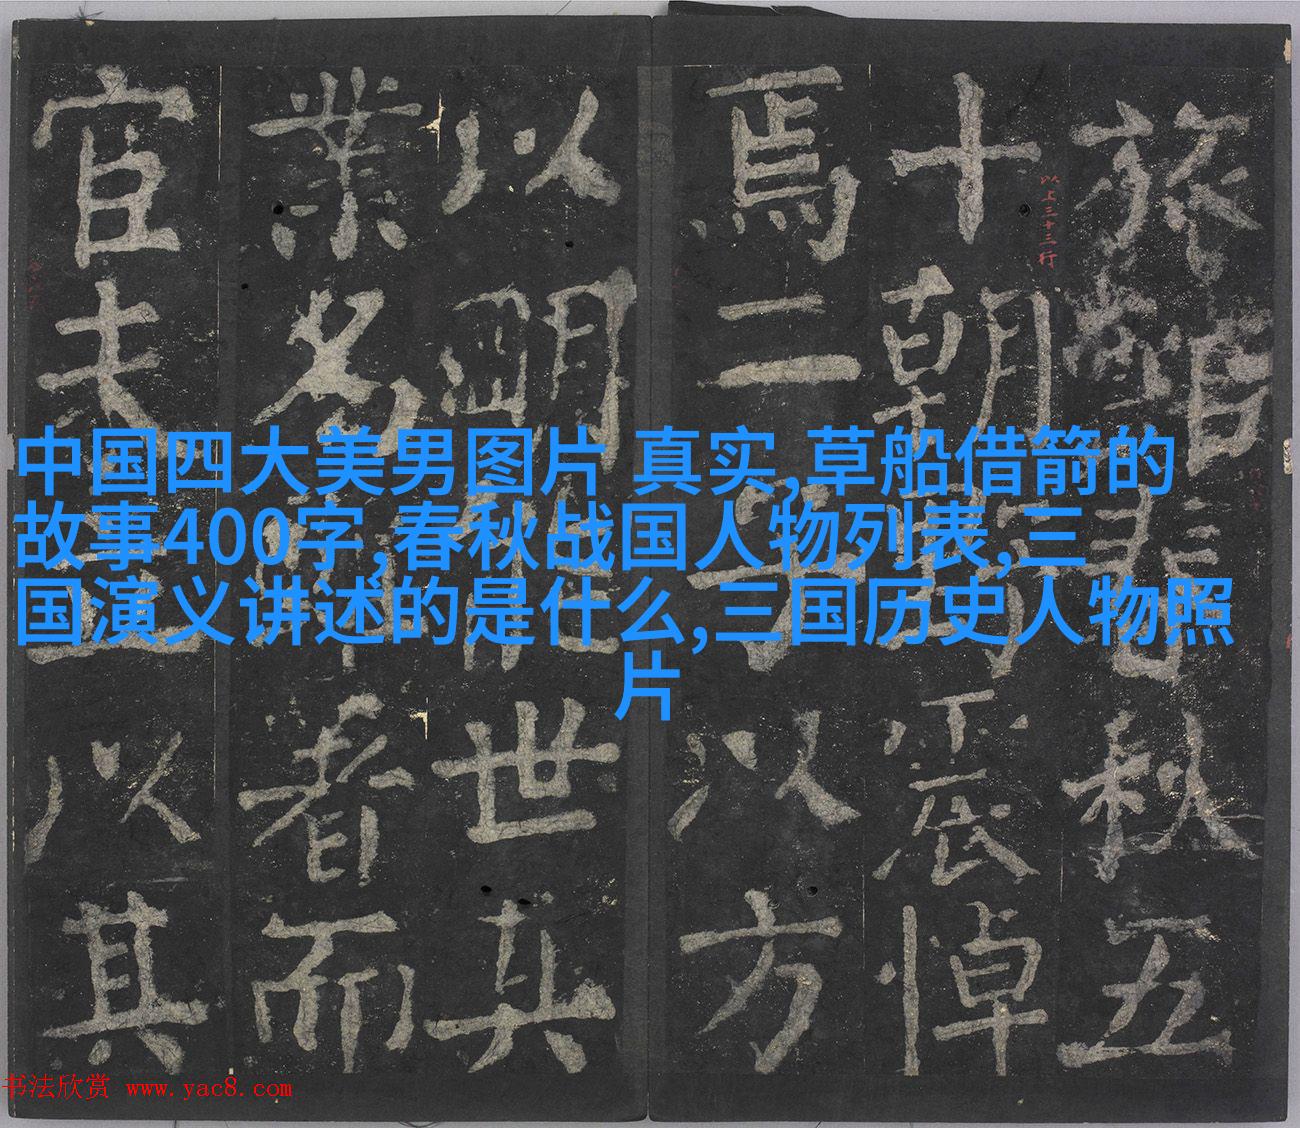 中国四大美男图片 真实,草船借箭的
故事400字,春秋战国人物列表,三
国演义讲述的是什么,三国历史人物照
片
旅館秋五
十朝野震悼
焉二子以方
以明能世其
業名者而
官未以其
以上三十三行
书法欣赏 www.yac8.com